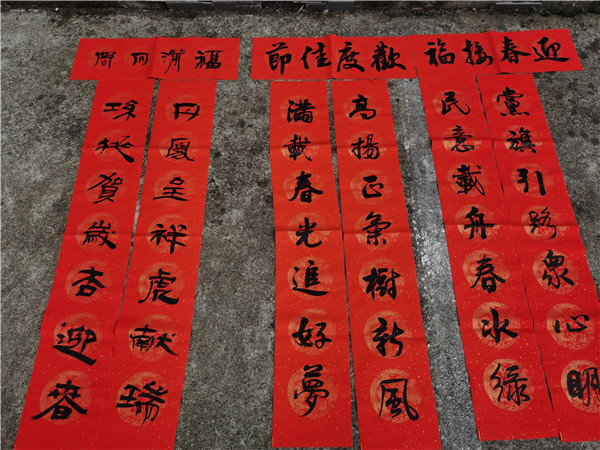 迎春接福
黨旗引路衆心明
民意載舟春水綠
歡度佳節
高揚正氣樹新風
滿載春光追好夢
福滿
丹鳳呈祥虎献瑞
桃賀歲杏迎春